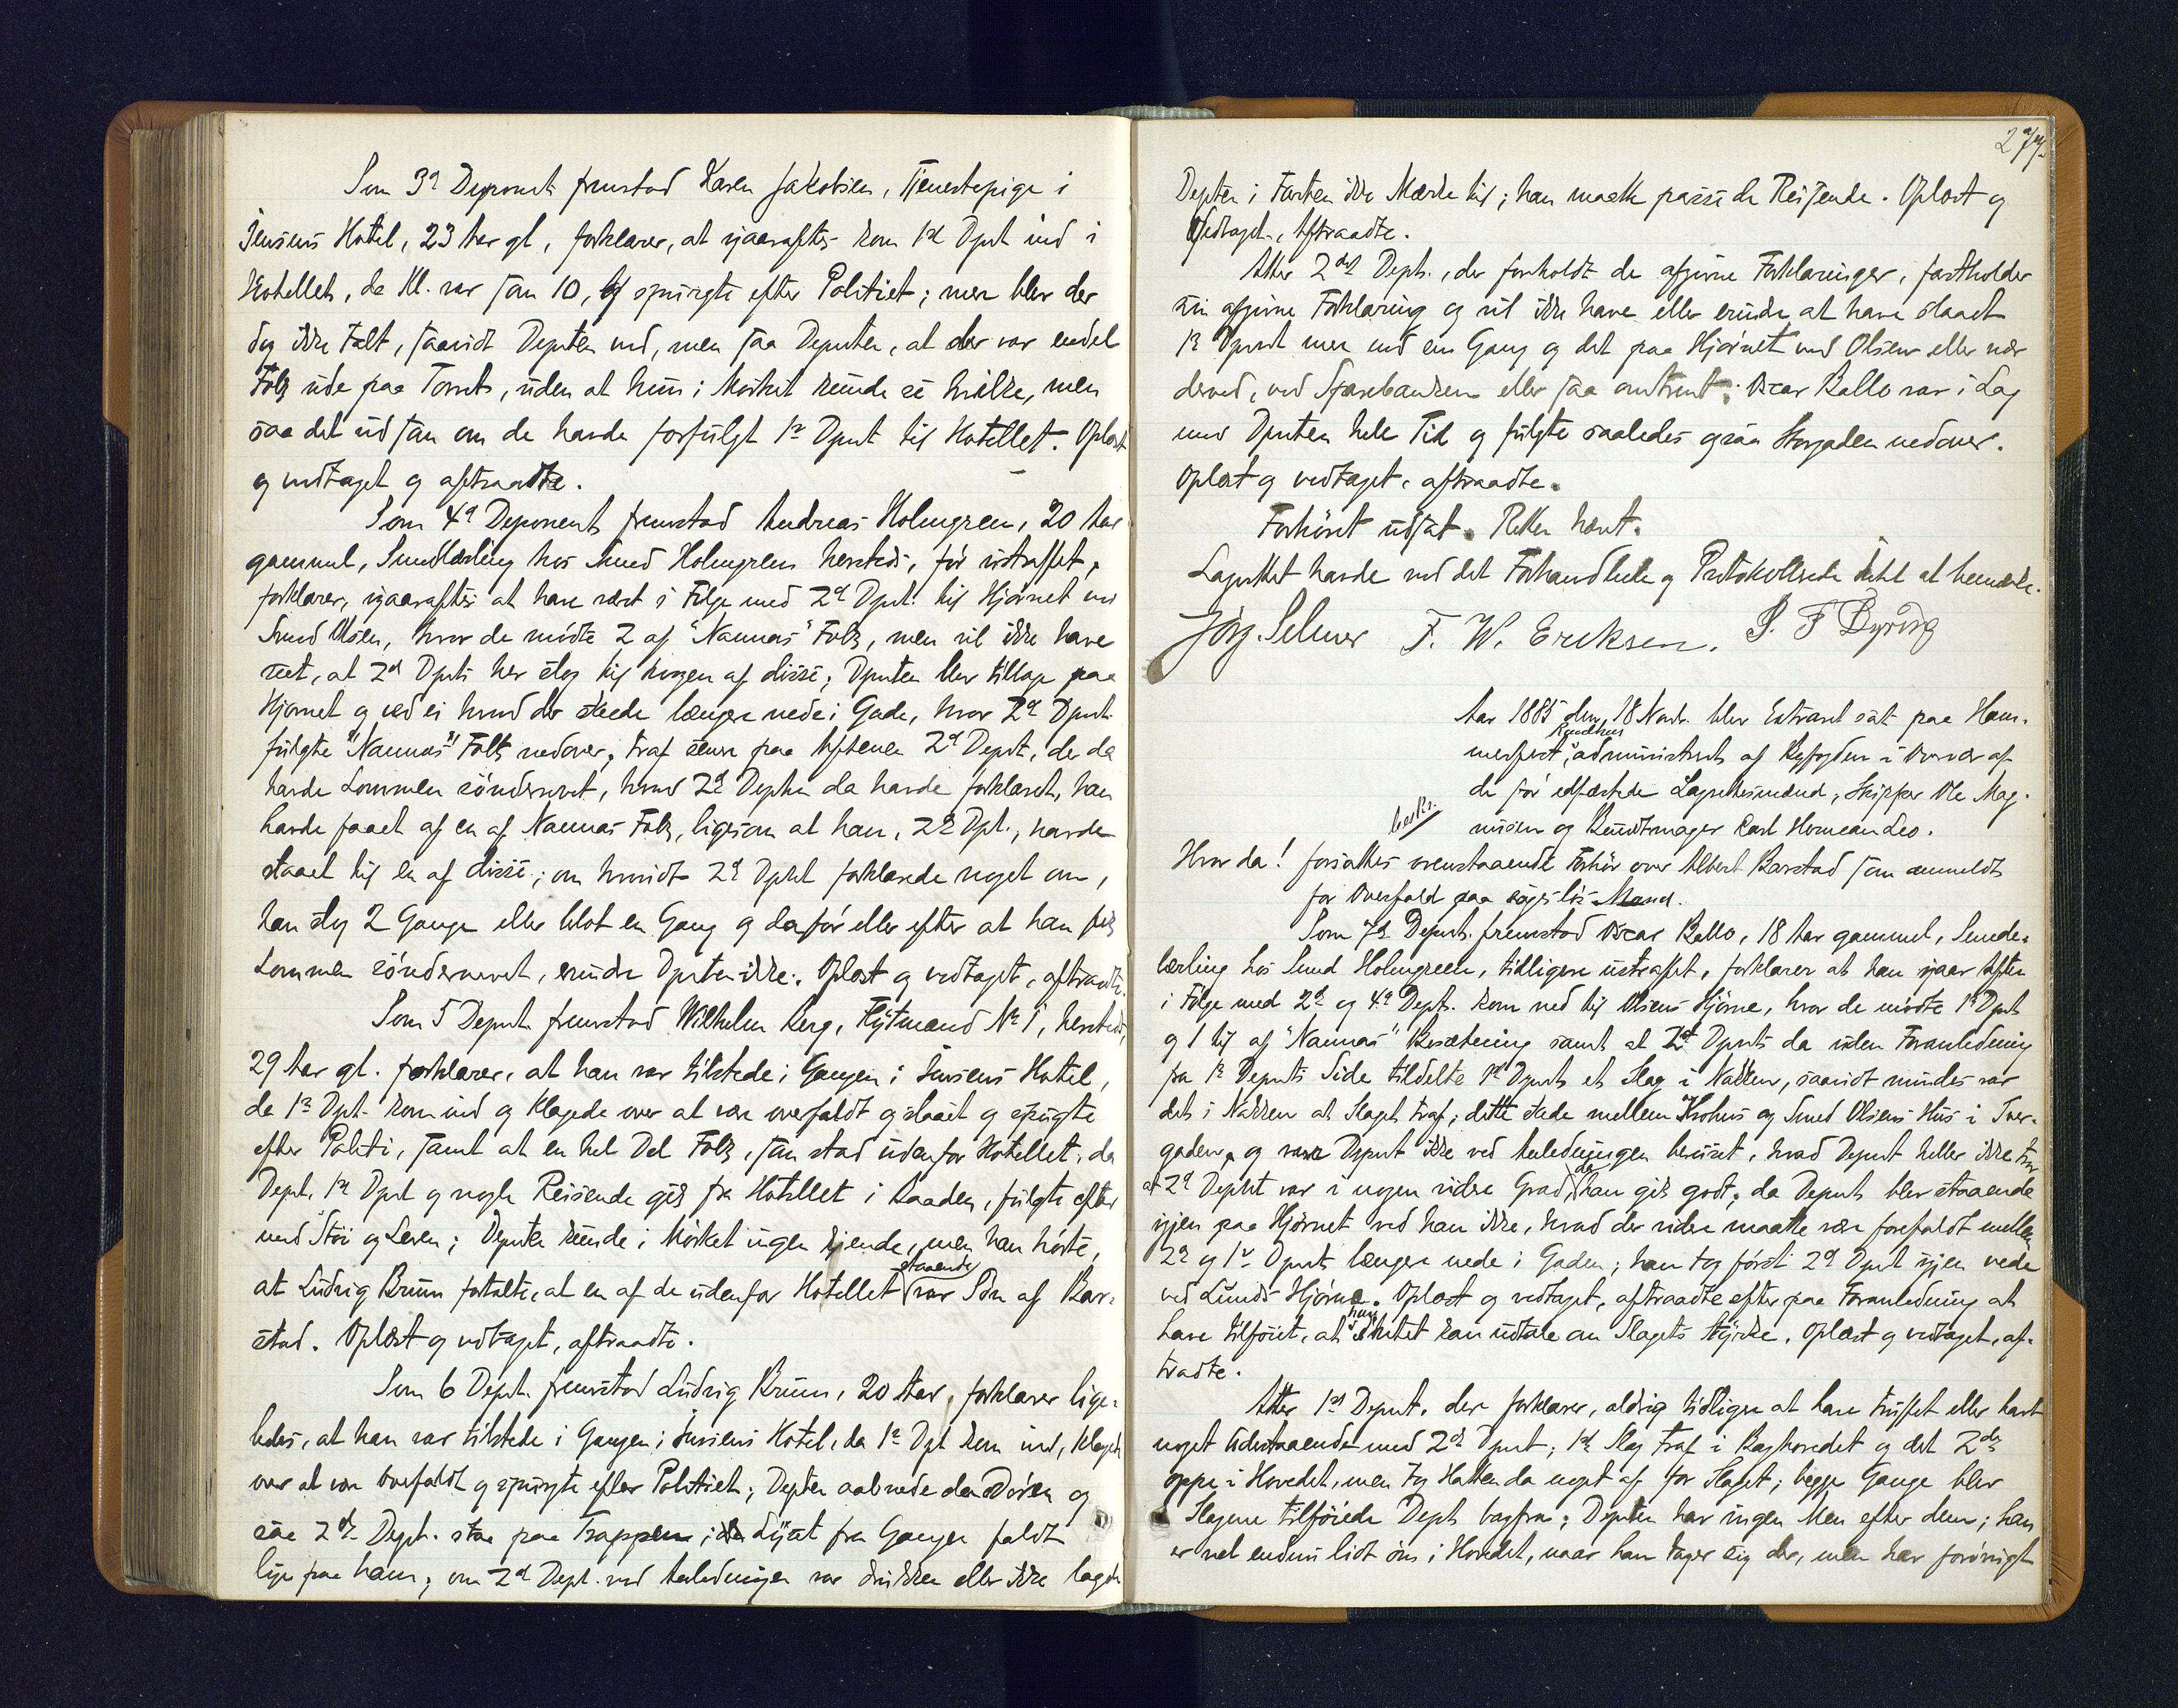 Som 3d Deponent fremstod Karen Jakobsen, Tjenestepige i
Jensens Hotel, 23 Aar gl, forklarer, at igaaraftes kom 1ste Dpnt ind i
Hotellet, da Kl. var saa 10, og spurgte efter Politiet; mere blev der
dog ikke talt, saavidt Deptn ved, men saa Deputn, at der var endel
Folk ude paa Torvet, uden at hun i Mørket kunde se hvilke, men
saa det ud som om de havde forfulgt 1ste Dpnt til Hotellet. Oplæst
og vedtaget og aftraadte.
Som 4d Deponent fremstod Andreas Holmgren, 20 Aar
gammel, Smedlærling hos Smed Holmgren hersteds, før ustraffet,
forklarer, igaaraftes at have været i Følge med 2d Dpnt. til Hjørnet ved
Smed Olsen, hvor de mødte 2 af "Nannas" Folk, men vil ikke have
seet, at 2d Dpnt her slog til nogen af disse; Dpnten blev tilbage paa
Hjørnet og ved ei hvad der skede længere nede i Gade, hvor 2d Dpnt.
fulgte "Nannas" Folk nedover, traf senere paa Aftenen 2d Depnt., der da
havde Lommen sønderrevet, hvad 2d Depten da havde forklaret, han
havde faaet af en af Nannas Folk, ligesom at han, 2d Dpt., havde
slaaet til en af disse; om hvorvidt 2d Dptet forklarede noget om,
han slog 2 Gange eller blot en Gang og da før eller efter at han fik
Lommen sønderrevet, erindrer Dpnten ikke. Oplæst og vedtaget, aftraadte.
Som 5 Depnt. fremstod Wilhelm Berg, Flytmand No 1, hersteds,
29 Aar gl. forklarer, at han var tilstede i Gangen i Jensens Hotel,
da 1ste Dpt. kom ind og klagede over at være overfaldt og slaaet og spurgte
efter Politi, samt at en hel Del Folk, som stod udenfor Hotellet, da
Dept, 1ste Dpnt og nogle Reisende gik fra Hotellet i Baaden, fulgte efter
med Støi og Leven; Depnten kunde i Mørket ingen kjende, men han hørte,
at Ludvig Bruun fortalte, at en af de udenfor Hotellet staaende var Søn af Bar-
stad. Oplæst og vedtaget, aftraadte.
Som 6 Dept. fremstod Ludvig Bruun, 20 Aar, forklarer lige-
ledes, at han var tilstede i Gangen i Jensens Hotel, da 1ste Dpt kom ind, klaget
over at være overfaldt og spurgte efter Politiet; Depten aabnede da Døren og
saa 2d Dept. staa paa Trappen; Lyset fra Gangen faldt
lige paa ham; om 2d Dept. ved Anledningen var drukken eller ikke lagde
277.
Depten i Farten ikke Mærke til; han maatte passe de Reisende. Oplæst og
Vedtaget, Aftraadte.
Atter 2det Dept., der foreholdt de afgivne Forklaringer, fastholder
sin afgivne Forklaring og vil ikke have eller erindre at have slaaet
1ste Dpnt mer end en Gang og det paa Hjørnet ved Olsen eller nær
derved, ved Sparebanken eller saa omtrent; Oscar Ballo var i Lag
med Dpnten hele Tid og fulgte saaledes ogsaa Storgaden nedover.
Oplæst og vedtaget, aftraadte.
Forhøret udsat. Retten hævet.
Lagrettet havde ved det Forhandlede og Protokollerede Intet at bemærke.
Jørg. Selmer F. W. Eriksen. P. F. Dyring
Aar 1885 den 18 Novbr. blev Extraret sat paa Ham-
merfest Raadhus, administreret af Byfogden i Overvær af
de før edfæstede Lagrettesmænd, Skipper Ole Mag-
nussen og Bundtmager Carl Herman Leo.
beskr.
Hvor da! forsattes ovenstaaende Forhør over Albert Barstad som anmeldt
for Overfald paa sagesløs Mand.
Som 7de Depnt. fremstod Oscar Ballo, 18 Aar gammel, Smede-
lærling hos Smed Holmgren, tidligere ustraffet, forklarer at han igaar Aften
i Følge med 2d og 4d Dept. kom ned til Olsens Hjørne, hvor de mødte 1ste Dpnt
og 1 til af "Nannas" Besætning samt at 2d Dpnts da uden Foranledning
fra 1ste Depnts Side tildelte 1ste Dpnts et Slag i Nakken, saavidt mindes var
det i Nakken at Slaget traf; dette skede mellem Krohus og Smed Olsens Hus i Tver-
gaden, og var Depnt ikke ved Anledningen beruset, hvad Depnt heller ikke tror
at 2d Depnt var i nogen videre Grad, da han gik godt; da Depnts blev staaende
igjen paa Hjørnet ved han ikke, hvad der videre maatte være forefaldt mellem
2d og 1ste Dpnts længere nede i Gaden; han tog først 2d Dpnt igjen nede
ved Lunds Hjørne. Oplæst og vedtaget, aftraadte efter paa Foranledning at
have tilføiet, at han Intet kan udtale om Slagets Styrke. Oplæst og vedtaget, af-
traadte.
Atter 1ste Depnt. der forklarer, aldrig tidligere at have truffet eller havt
noget udestaaende med 2det Dpnt; 1ste Slag traf i Baghovedet og det 2det
oppe i Hovedet, men tog Hatten da noget af for Slaget; begge Gange blev
Slagene tilføiede Dept bagfra; Depnten har ingen Men efter dem; han
er vel endnu lidt øm i Hovedet, naar han tager sig der, men har forøvrigt